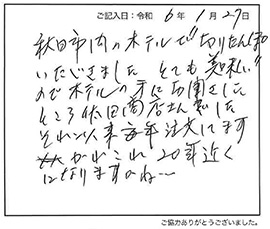 ご記入日：令和 6年 1月 27日
秋田市内のホテルで"きりたんぽ
いただきました とても美味しい"
のでホテルの方にお聞きした
ところ 佐田商店さんでした
それ以来毎年注文してます
かれこれ 20年近く
になりますかね〜
ご協力ありがとうございました。